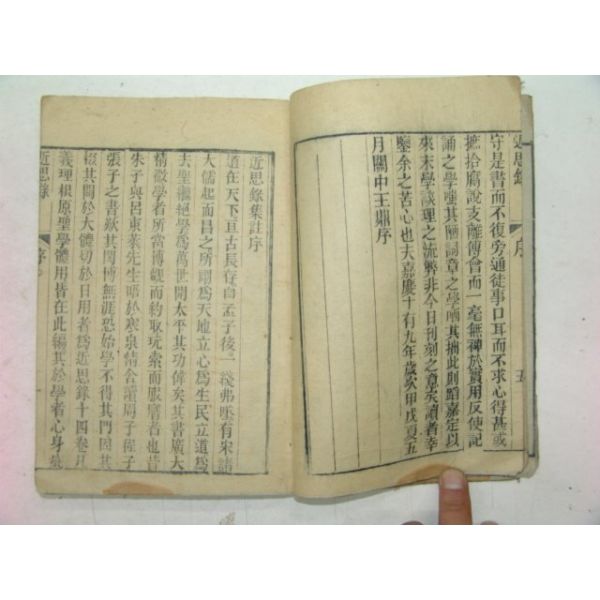 近思錄
序
五
守是書而不復旁通徒事口耳而不求心得甚或
摭拾腐說支離傅會而一毫無裨於實用反使記
誦之學嗤其陋詞章之學哂其拙此則蹈嘉定以
來末學談理之流弊非今日刊刻之意矣讀者幸
鑒余之苦心也夫嘉慶十有九年歲次甲戌夏五
月關中王鼎序
近思錄集註序
道在天下亘古長存自孟子後一綫弗墜有宋諸
大儒起而昌之所謂為天地立心為生民立道為
去聖繼絕學為萬世開太平其功偉矣其書廣大
精微學者所當博觀而約取玩索而服膺者也昔
朱子與呂東萊先生晤於寒泉精舍讀周子程子
張子之書歎其閎博無涯恐始學不得其門因共
掇其關於大體切於日用者為近思錄十四卷凡
義理根原聖學體用皆在此編其於學者心身
近思錄
序